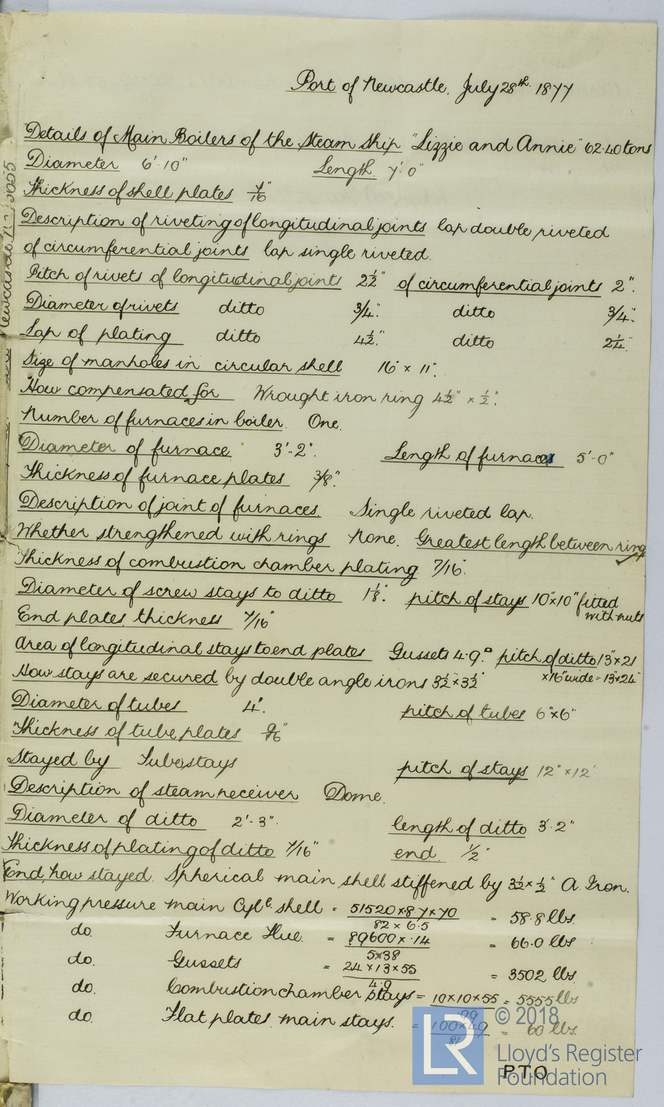 Port of Newcastle. July 28th 1877
Details of Main Boilers of the Steam Ship "Lizzie and Annie" 62.40 tons
Diameter 6'-10" Length 7'-0"
Thickness of shell plates 7/16"
Description of riveting of longitudinal joints lap double riveted
of circumferential joints lap single riveted.
Pitch of rivets of longitudinal joints 2½" of circumferential joints 2".
Diameter of rivets ditto 3/4". ditto 3/4".
Lap of plating ditto 4½". ditto 2¼".
Size of manholes in circular shell 16" × 11".
How compensated for Wrought iron ring 4½" × ½".
Number of furnaces in boiler One.
Diameter of furnace 3'-2". Length of furnaces 5'-0"
Thickness of furnace plates 3/8".
Description of joint of furnaces Single riveted lap.
Whether strengthened with rings None. Greatest length between rings
Thickness of combustion chamber plating 7/16".
Diameter of screw stays to ditto 1⅛". pitch of stays 10"×10" fitted
with nuts
End plates thickness 7/16"
Area of longitudinal stays to end plates Gussets 4.9 pitch of ditto 13"×21
How stays are secured by double angle irons 3½"×3½" ×16" wide = 13"×24"
Diameter of tubes 4". pitch of tubes 6"×6"
Thickness of tube plates
Stayed by Tube stays pitch of stays 12"×12"
Description of steam receiver Dome.
Diameter of ditto 2'-3". length of ditto 3'-2"
Thickness of plating of ditto 7/16" end ½"
End, how stayed. Spherical main shell stiffened by 3½×½" A. Iron.
Working pressure main Cylc shell = 51520×87×70 = 58.8 lbs
82 × 6.5
do. Furnace Flue = 89600×.14 = 66.0 lbs
5×38
do. Gussets = 24×13×55 = 3502 lbs.
4.9
do. Combustion chamber stays = 10×10×55 = 5555 lbs
.99
do. Flat plates main stays. = 100×49 = 60 lbs.
81
PTO
© 2018
LR
Lloyd's Register
Foundation